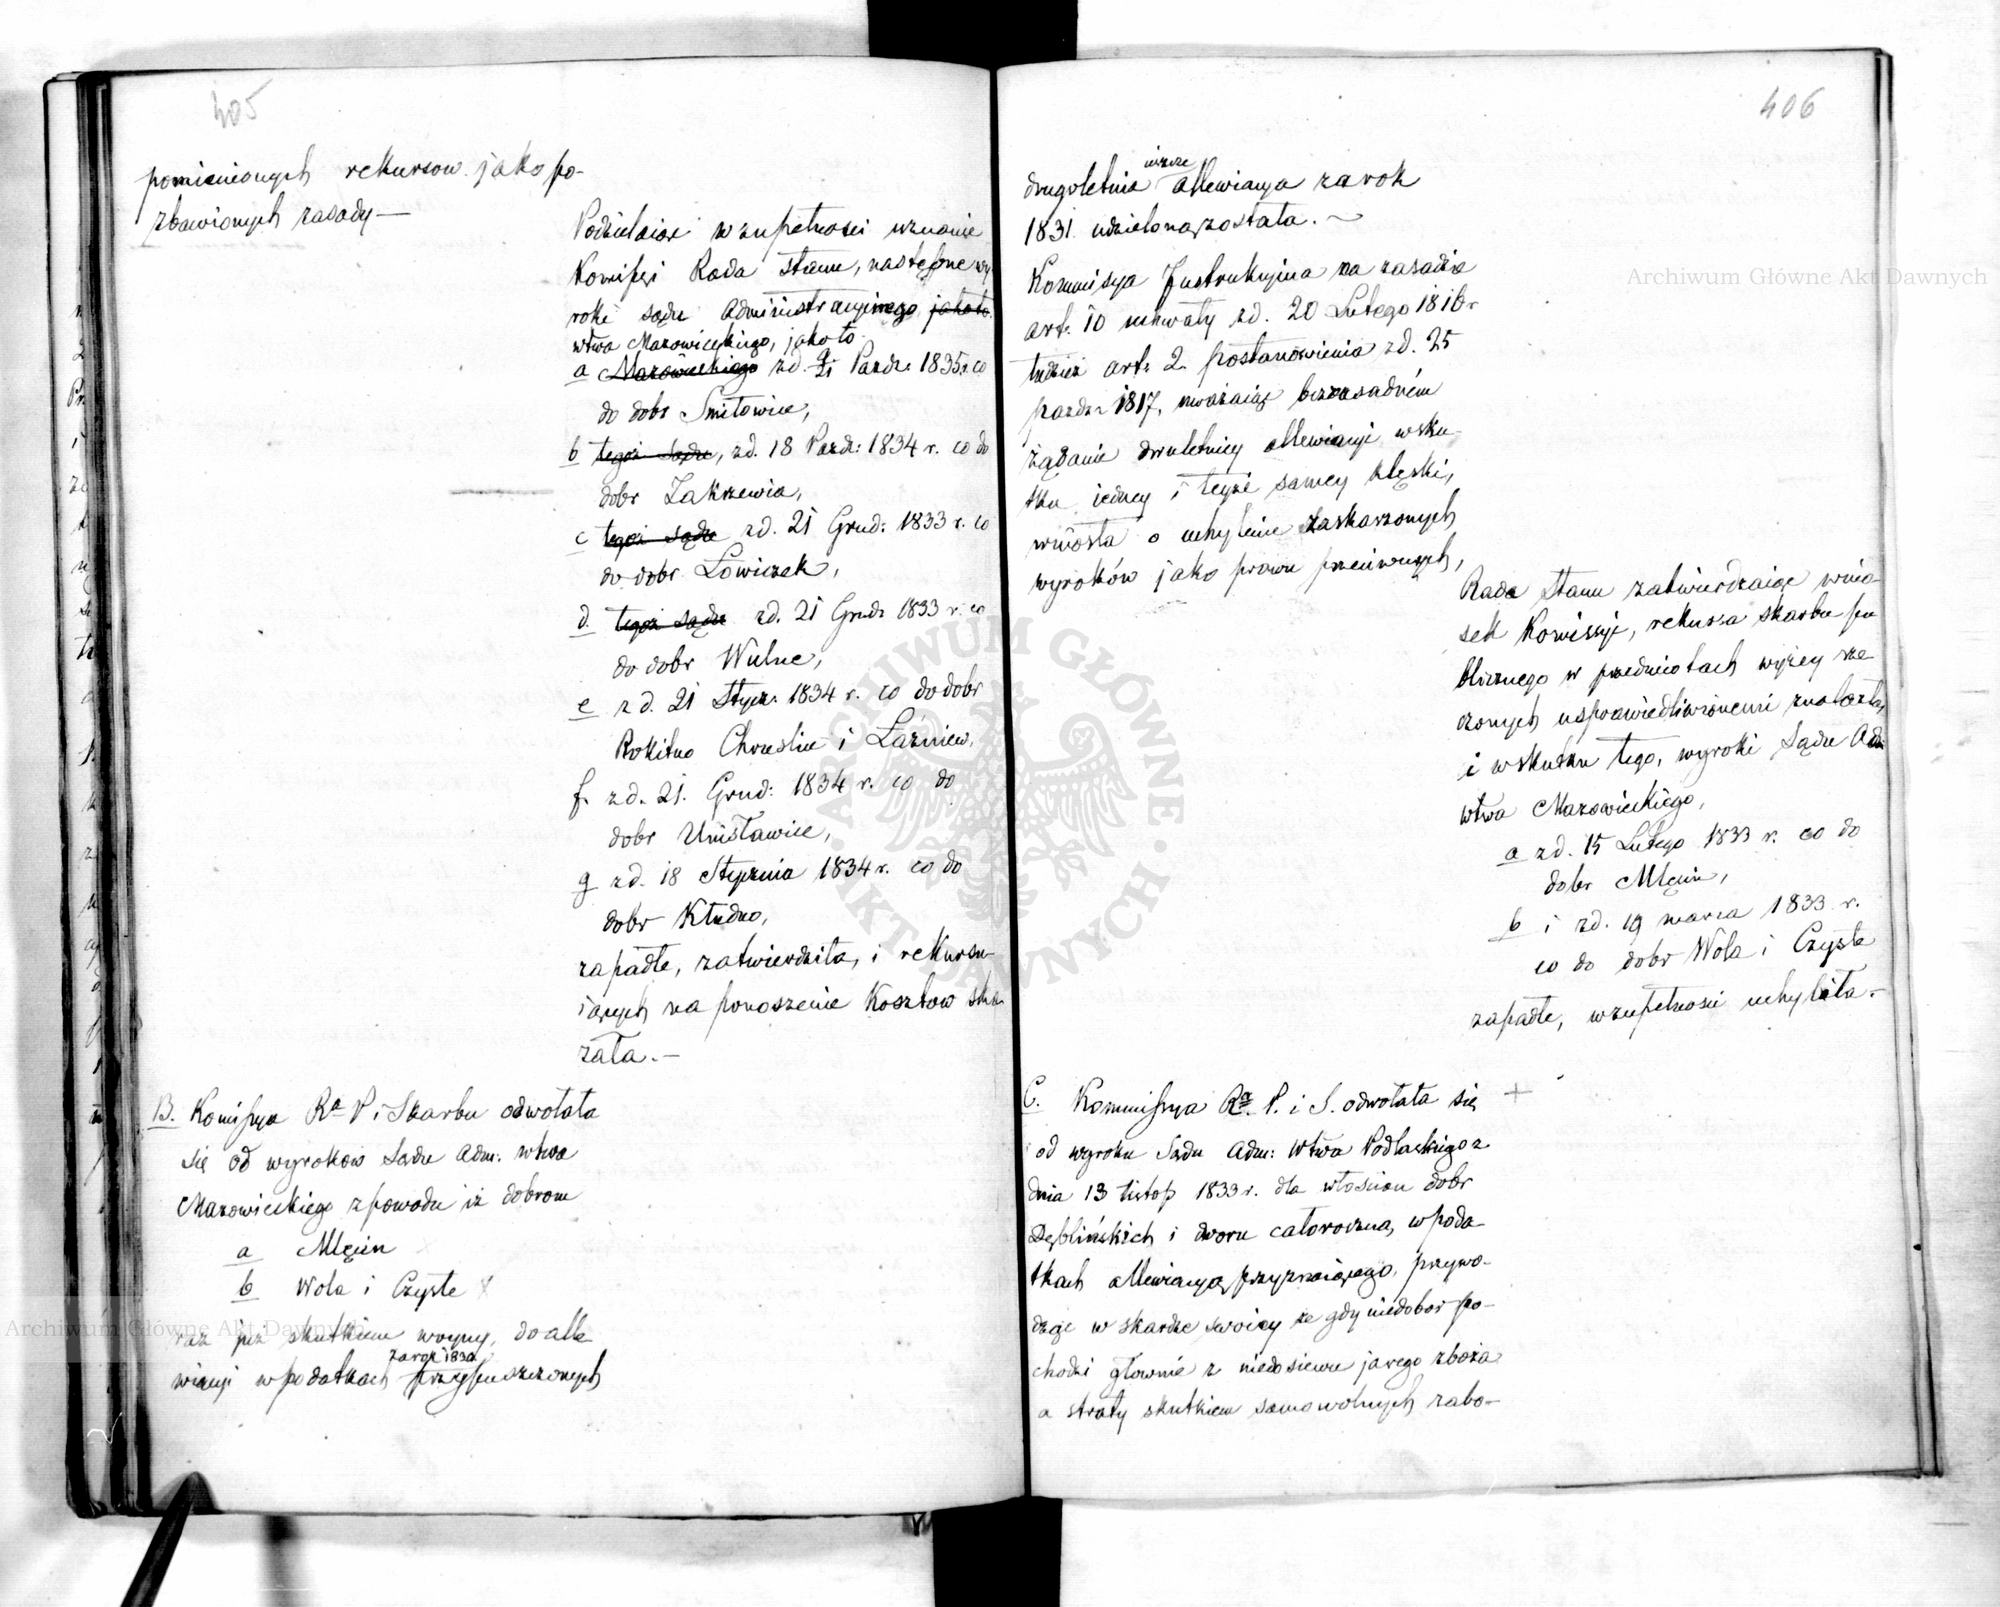 405
pomienionych rekursow jako po-
zbawionych zasady—
Podzielaiąc w zupełności uznanie
Komissyi Rada Stanu, następne wy
roki sądu Administracyinego jakoto
wtwa Mazowieckiego, jako to
a Mazowieckiego zd. 9/21 Pazdz: 1835 r. co
do dobr Smiłowice,
b tegoż sądu, zd. 18 Pazdz: 1834 r. co do
dobr Zakrzewia,
c tegoż sądu zd. 21 Grud: 1833 r. co
do dobr Łowiczek,
d. tegoż sądu zd. 21 Grud: 1833 r. co
do dobr Wulne,
e zd. 21 Stycz: 1834 r. co do dobr
Rokitno i Łaźniew,
f. zd. 21. Grud: 1834 r. co do
dobr Unisławice,
g zd. 18 Stycznia 1834 r. co do
dobr Kłudno,
zapadłe, zatwierdziła, i rekursu-
iących na ponoszenie Kosztow ska
zała.—
B. Komissya Ra P i Skarbu odwołała
się od wyrokow Sądu Adm: wtwa
Mazowieckiego z powodu iż dobrom
a Mlęcin
b Wola i Czyste x
raz już skutkiem woyny, do alle
wiacyi w podatkach za rok 1830 przypuszczonych
Archiwum Główne Akt Dawnych
406
drugoletnia ieszcze allewiacya za rok
1831 udzieloną została.~
Kommissya Instrukcyina na zasadzie
art. 10 uchwały zd. 20 Lutego 1816 r
tudzież art: 2 postanowienia zd. 25
pazdz: 1817, uważaiąc bezzasadném
żądanie dwuletniey allewiacyi wsku-
tku iedney i teyże samey klęski,
wniosła o uchylenie zaskarzonych
wyroków jako prawu przeciwnych,
Rada Stanu zatwierdzaiąc wnio-
sek Komissyi, rekursa skarbu pu
blicznego w przedmiotach wyżey rze
czonych usprawiedliwionemi znalazła,
i wskutku tego, wyroki Sądu Adm
wtwa Mazowieckiego,
a zd. 15 Lutego 1833 r. co do
dobr Mlęcin,
b i zd. 19 marca 1833 r.
co do dobr Wola i Czyste
zapadłe, w zupełności uchyliła.—
C. Kommissya Ra. P. i S. odwołała się +
od wyroku Sądu Adm: Wtwa Podlaskiego z
dnia 13 listop 1833 r. dla włościan dobr
Dęblińskich i dworu całoroczną, w poda-
tkach allewiacyą przyznaiącego, przywo-
dząc w skardze swoiey że gdy niedobor po-
chodzi głownie z niedosiewu jarego zboża
a straty skutkiem samowolnych zabo-
Archiwum Główne Akt Dawnych
ARCHIWUM GŁÓWNE · AKT DAWNYCH ·